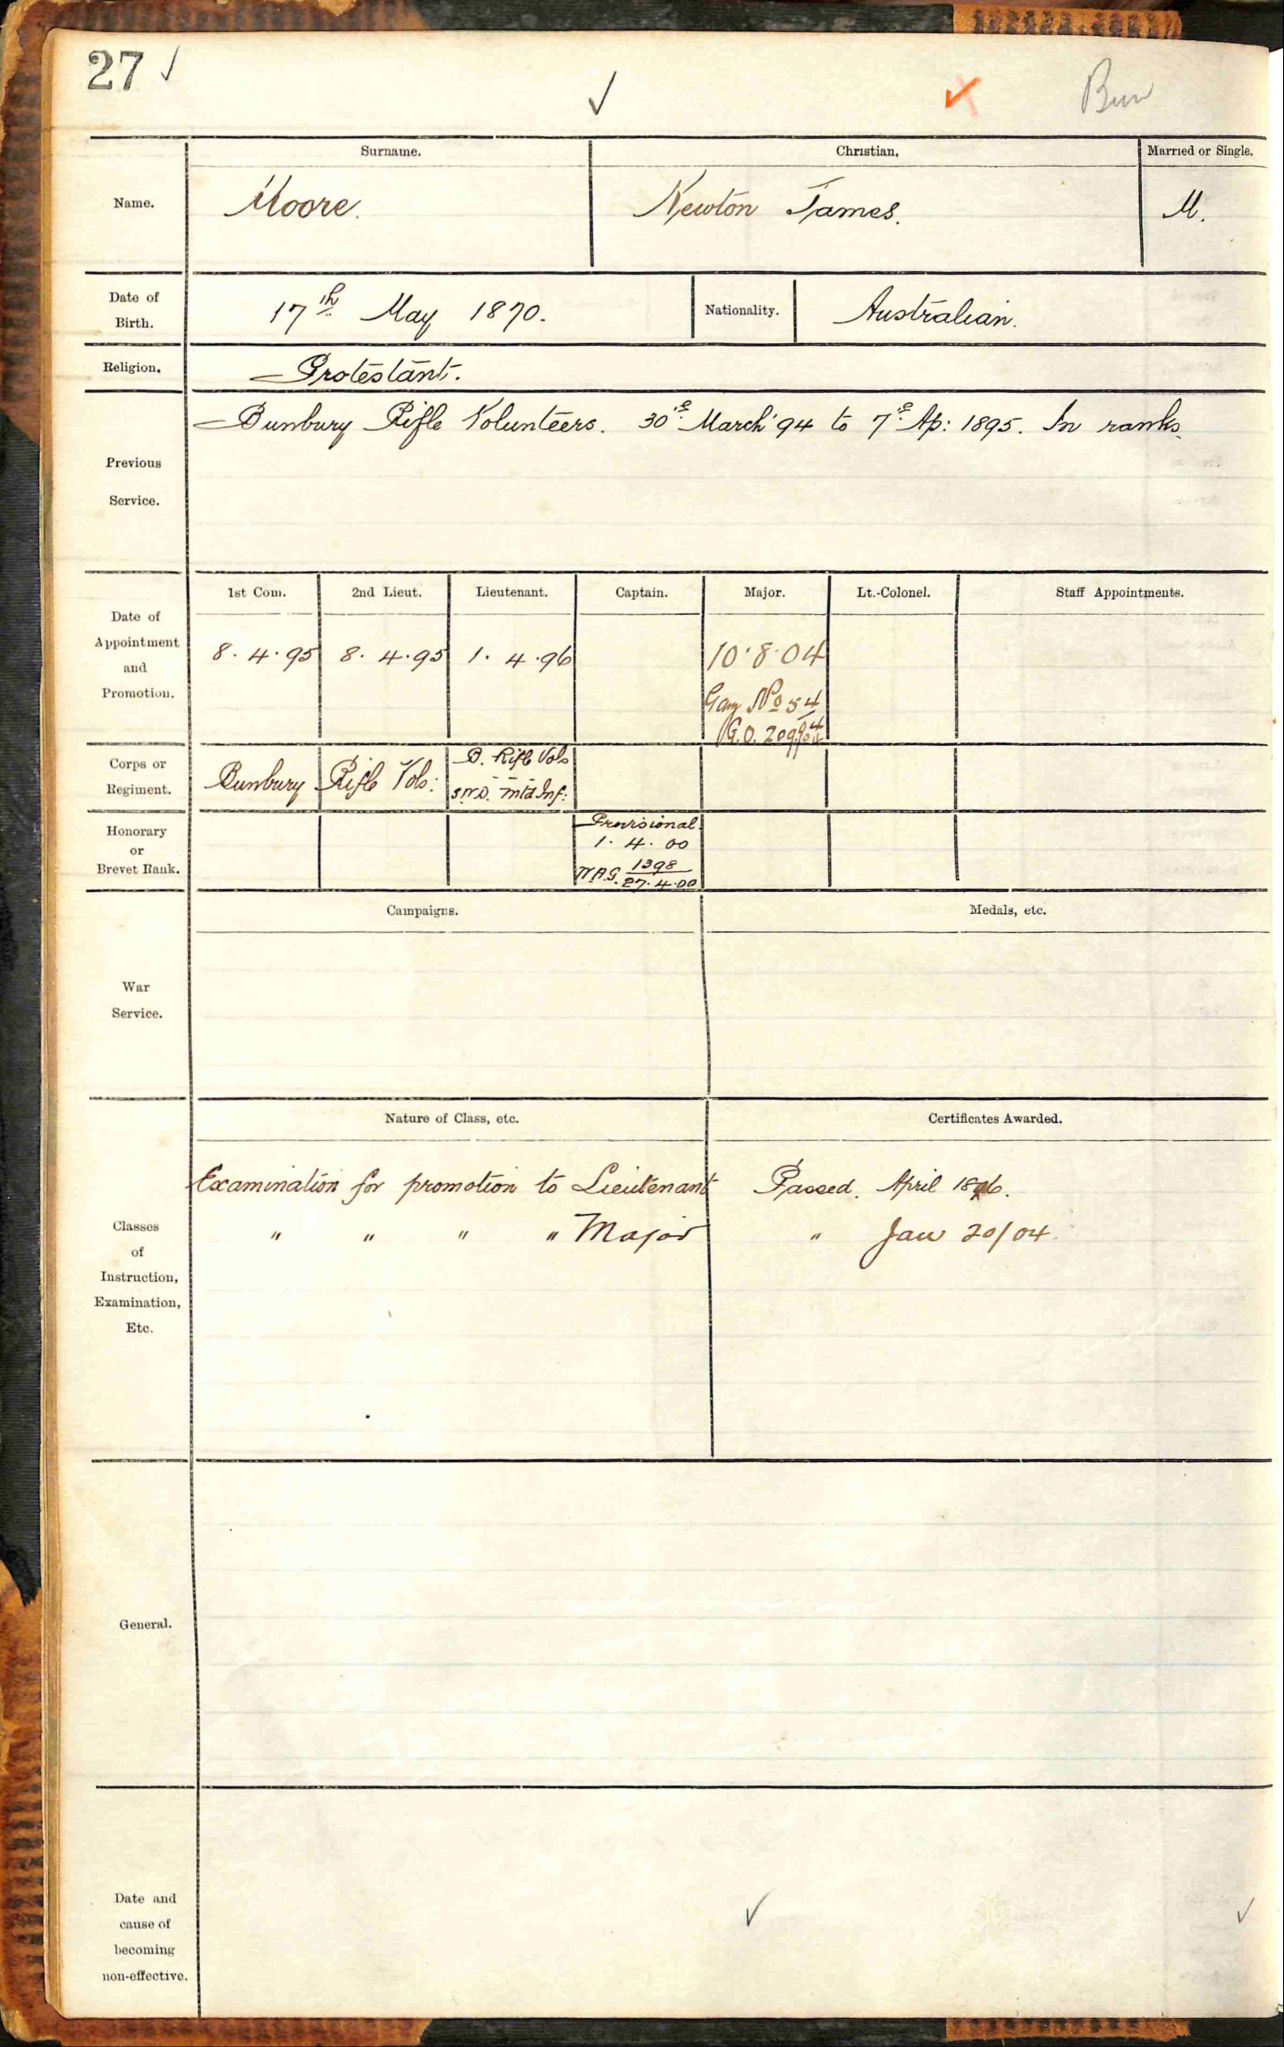 27
Bun
Surname. Christian. Married or Single.
Name. Moore. Newton James. M.
Date of Birth. 17th May 1870. Nationality. Australian.
Religion. Protestant.
Bunbury Rifle Volunteers. 30th March '94 to 7th Ap: 1895. In ranks.
Previous
Service.
1st Com. 2nd Lieut. Lieutenant. Captain. Major. Lt.-Colonel. Staff Appointments.
Date of
Appointment
and
Promotion.
8.4.95 8.4.95 1.4.96 10.8.04
Gaz No 54
G.O. 209
Corps or
Regiment.
Bunbury Rifle Vols: B. Rifle Vols
S.W.D. Mtd Inf:
Honorary
or
Brevet Rank.
Provisional.
1.4.00
W.A.G. 1398
27.4.00
Campaigns. Medals, etc.
War
Service.
Nature of Class, etc. Certificates Awarded.
Examination for promotion to Lieutenant Passed. April 1896.
" " " " Major " Jan 20/04.
Classes
of
Instruction,
Examination,
Etc.
General.
Date and
cause of
becoming
non-effective.